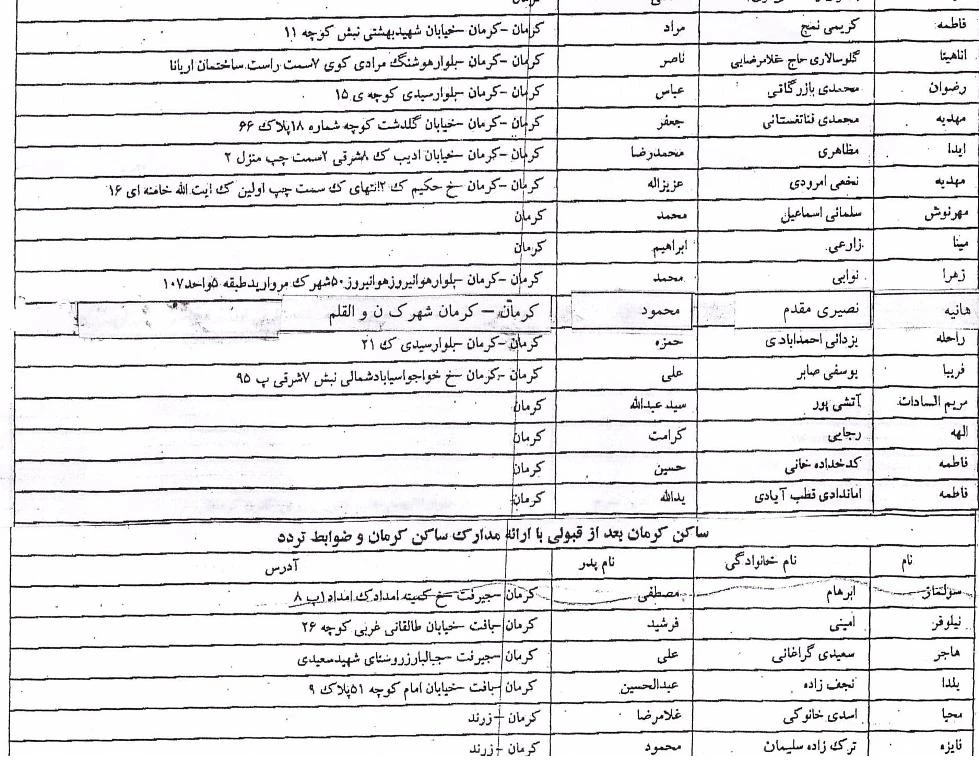 فاطمه کریمی نمج مراد کرمان –کرمان –خیابان شهیدبهشتی نبش کوچه ۱۱
اناهیتا گلوسالاری حاج غلامرضایی ناصر کرمان –کرمان –بلوارهوشنگ مرادی کوی ۷سمت راست ساختمان اریانا
رضوان محمدی بازرگانی عباس کرمان –کرمان –بلوارسیدی کوچه ی ۱۵
مهدیه محمدی قناتغستانی جعفر کرمان –کرمان –خیابان گلدشت کوچه شماره ۱۸پلاک ۶۶
ایدا مظاهری محمدرضا کرمان –کرمان –خیابان ادیب ک ۸شرقی ۲سمت چپ منزل ۲
مهدیه نخعی امرودی عزیزاله کرمان –کرمان –خ حکیم ک ۲انتهای ک سمت چپ اولین ک ایت الله خامنه ای ۱۶
مهرنوش سلمانی اسماعیل محمد کرمان
مینا زارعی ابراهیم کرمان
زهرا نوابی محمد کرمان –کرمان –بلوارهوانیروزهوانیروز۵۰شهرک مرواریدطبقه ۵واحد۱۰۷
هانیه نصیری مقدم محمود کرمان – کرمان شهرک ن و القلم
راحله یزدانی احمدابادی حمزه کرمان –کرمان –بلوارسیدی ک ۲۱
فریبا یوسفی صابر علی کرمان –کرمان –خ خواجواسیابادشمالی نبش ۷شرقی پ ۹۵
مریم السادات آتشی پور سید عبدالله کرمان
الهه رجایی کرامت کرمان
فاطمه کدخداده خانی حسین کرمان
فاطمه اماندادی قطب آبادی یدالله کرمان
ساکن کرمان بعد از قبولی با ارائه مدارک ساکن کرمان و ضوابط تردد
نام نام خانوادگی نام پدر آدرس
سولماز ابرهام مصطفی کرمان –جیرفت –خ کمیته امدادک امداد۱پ ۸
نیلوفر امینی فرشید کرمان –بافت –خیابان طالقانی غربی کوچه ۲۶
هاجر سعیدی گراغانی علی کرمان –جیرفت –جبالبارزروستای شهیدسعیدی
یلدا نجف زاده عبدالحسین کرمان –بافت –خیابان امام کوچه ۵۱پلاک ۹
محیا اسدی خانوکی غلامرضا کرمان –زرند
فایزه ترک زاده سلیمان محمود کرمان –زرند